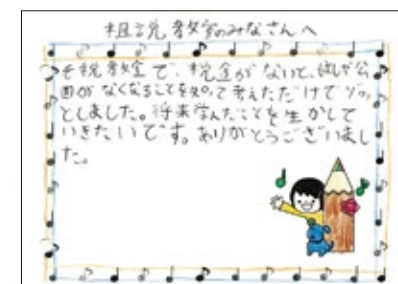 租税教室のみなさんへ
租税教室で、税金がないと、
公園がなくなることを知って考えただけでゾッ
としました。将来学んだことを生かして
いきたいです。ありがとうございまし
た。